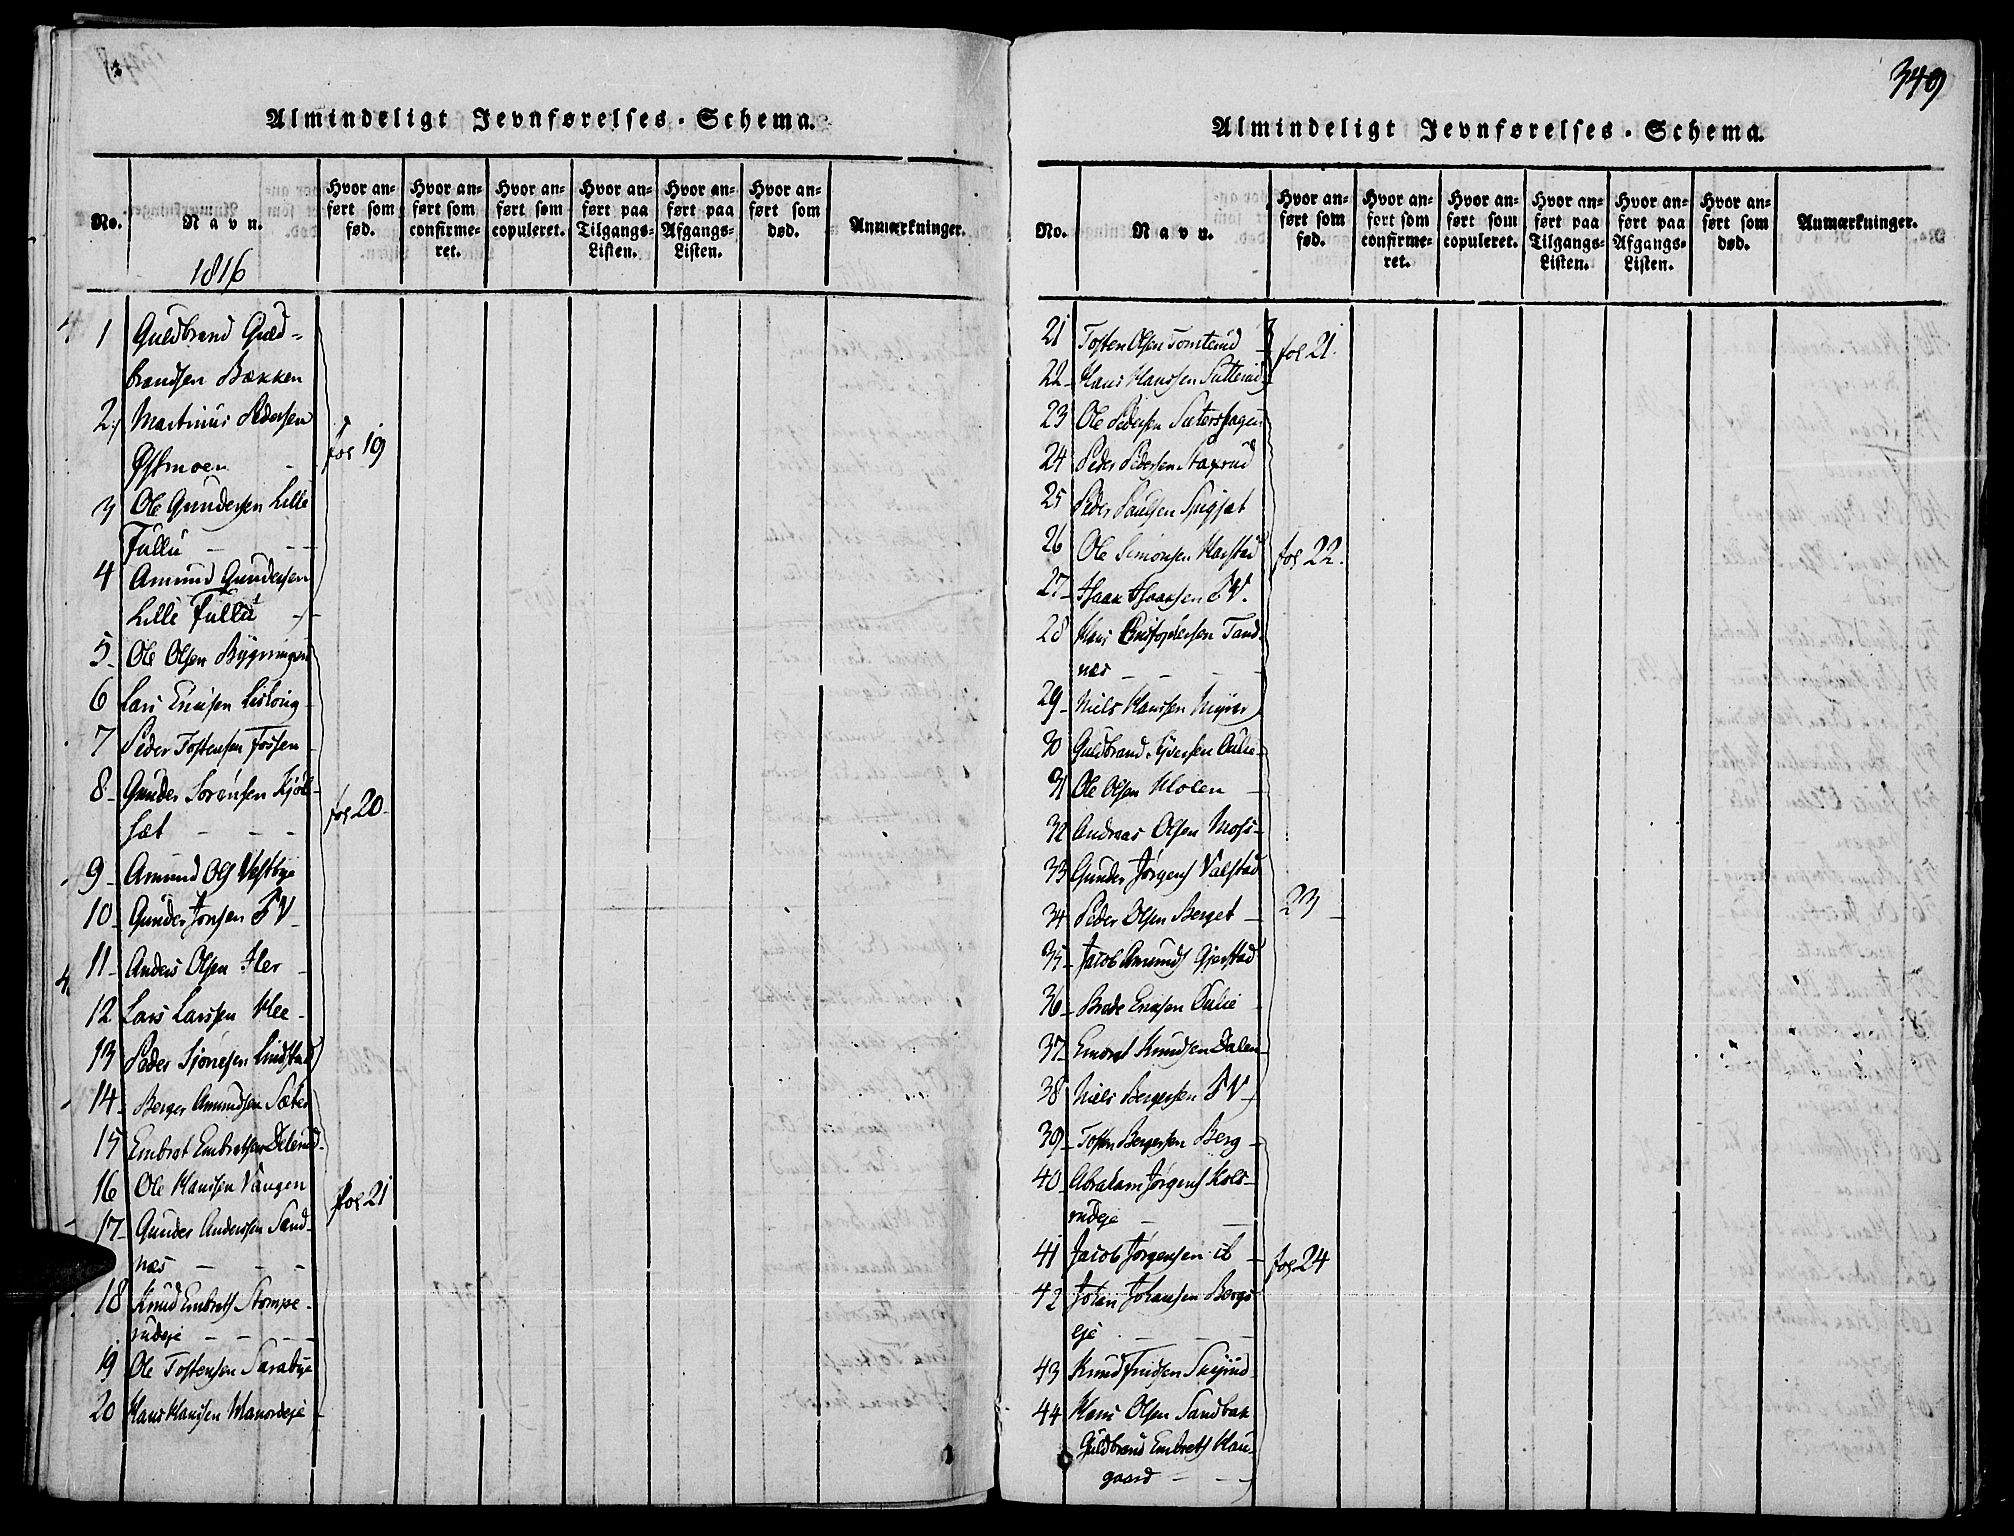 Almindeligt Jevnførelses-Schema.
No. Navn. Hvor anført som fød. Hvor anført som confirmeret. Hvor anført som copuleret. Hvor anført paa Tilgangs-Listen. Hvor anført paa Afgangs-Listen. Hvor anført som død. Anmærkninger.
1816
1 Guldbrand Guld-
brandsen Bækken
2 Martinus Pedersen
Østmoen fol 19
3 Ole Gundersen Lille
Fullu
4 Amund Gundersen
Lille Fullu
5 Ole Olsen Bygningen
6 Lars Ericsen
7 Peder Tostensen Fossen
8 Gunder Sørensen Kjøl-
sæt fol 20
9 Amund Ols Vestbye
10 Gunder Jonsen S V
11 Anders Olsen Fler
12 Lars Larssen Klee
13 Peder Lindstad
14 Berger Amundsen Sæter
15 Embret Embretsen
16 Ole Hanssen Vangen fol 21
17 Gunder Anderssen Sand-
næs
18 Knud Embrets Stompe-
rudeje
19 Ole Tostensen
20 Hans Hanssen
349
Almindeligt Jevnførelses-Schema.
No. Navn. Hvor anført som fød. Hvor anført som confirmeret. Hvor anført som copuleret. Hvor anført paa Tilgangs-Listen. Hvor anført paa Afgangs-Listen. Hvor anført som død. Anmærkninger.
21 Tosten Olsen Tomterud fol 21.
22 Hans Hanssen
23 Ole Pedersen Sætershagen
24 Peder Pedersen Staxrud
25 Peder Paulsen
26 Ole Simonsen Harstad fol 22.
27 Isaak Isaaksen S V.
28 Hans Christophersen Sand-
næs
29 Niels Hanssen Myrer
30 Guldbrand Iversen Aulie
31 Ole Olsen Molen
32 Andreas Olsen Moss
33 Gunder Jørgens Valstad
34 Peder Olsen Berget 23
35 Jacob Amunds Gjerstad
36 Brede Ericsen Aulie
37 Embret Knudsen Dalen
38 Niels Bergersen S V
39 Tosten Bergersen Berg
40 Abraham Jørgens Kols-
rudeje
41 Jacob Jørgensen ib fol 24
42 Johan Johansen Bergs-
eje
43 Knud
44 Hans Olsen Sandbak
Guldbrand Embrets Hau-
gaard